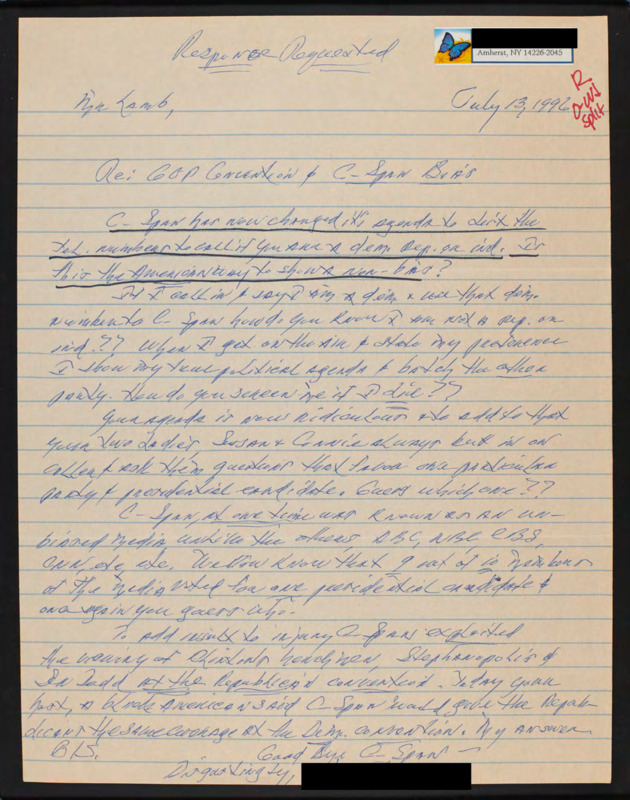 Response Requested
Amherst, NY 14226-2045
Mr. Lamb,
July 13, 1996
R
D-WJ
split
Re: GOP Convention & C-Span Bias
C-Span has now changed it's agenda to list the
tel. numbers to call if you are a dem. rep. or ind. Is
this the American way to show a non-bias?
If I call in & say I am a dem & use that dem.
number to C-Span how do you know I am not a rep. or
ind?? When I get on the air & state my preference
I show my true political agenda & botch the other
party. How do you screen me if I lie??
Your agenda is now ridiculous & to add to that
your two ladies Susan & Connie always but in on
callers & ask them questions that favor one particular
party & presidential candidate. Guess which one??
C-Span, at one time was known as an un-
biased media unlike the others ABC, NBC, CBS,
CNN, etc. etc. We all know that 9 out of 10 members
of the media voted for one presidential candidate &
once again you guess who.
To add insult to injury C-Span exploited
the of Clintons henchmen, Stephanopolis &
Sen Dodd at the Republican convention. Today your
host, a black American said C-Span would give the Repub-
licans the same coverage at the Dem. convention. My answer
B.S.
Good Bye C-Span —
Disgustingly,